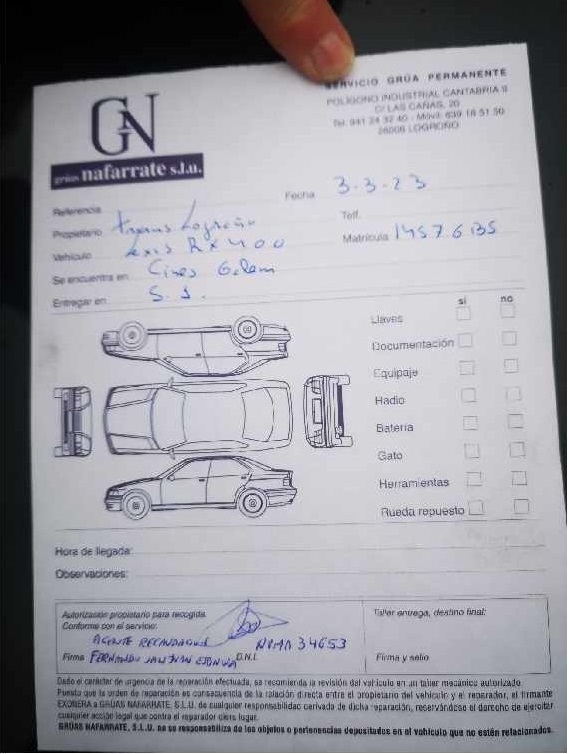 SERVICIO GRÚA PERMANENTE
POLÍGONO INDUSTRIAL CANTABRIA II
C/ LAS CAÑAS, 20
Tel. 941 24 32 40 - Móvil: 639 18 51 50
26006 LOGROÑO
GN
grúas nafarrate s.l.u.
Fecha 3-3-23
Referencia
Propietario Logroño Telf.
Vehículo Lexis RX 400 Matrícula 1457 GBS
Se encuentra en Cines
Entregar en S. J.
si no
Llaves
Documentación
Equipaje
Radio
Batería
Gato
Herramientas
Rueda repuesto
Hora de llegada:
Observaciones:
Autorización propietario para recogida.
Conforme con el servicio:
AGENTE NUMA 34653
Firma FERNANDO D.N.I.
Taller entrega, destino final:
Firma y sello
Dado el carácter de urgencia de la reparación efectuada, se recomienda la revisión del vehículo en un taller mecánico autorizado.
Puesto que la orden de reparación es consecuencia de la relación directa entre el propietario del vehículo y el reparador, el firmante
EXONERA a GRÚAS NAFARRATE, S.L.U. de cualquier responsabilidad derivada de dicha reparación, reservándose el derecho de ejercitar
cualquier acción legal que contra el reparador cierre lugar.
GRÚAS NAFARRATE, S.L.U. no se responsabiliza de los objetos o pertenencias depositados en el vehículo que no estén relacionados.